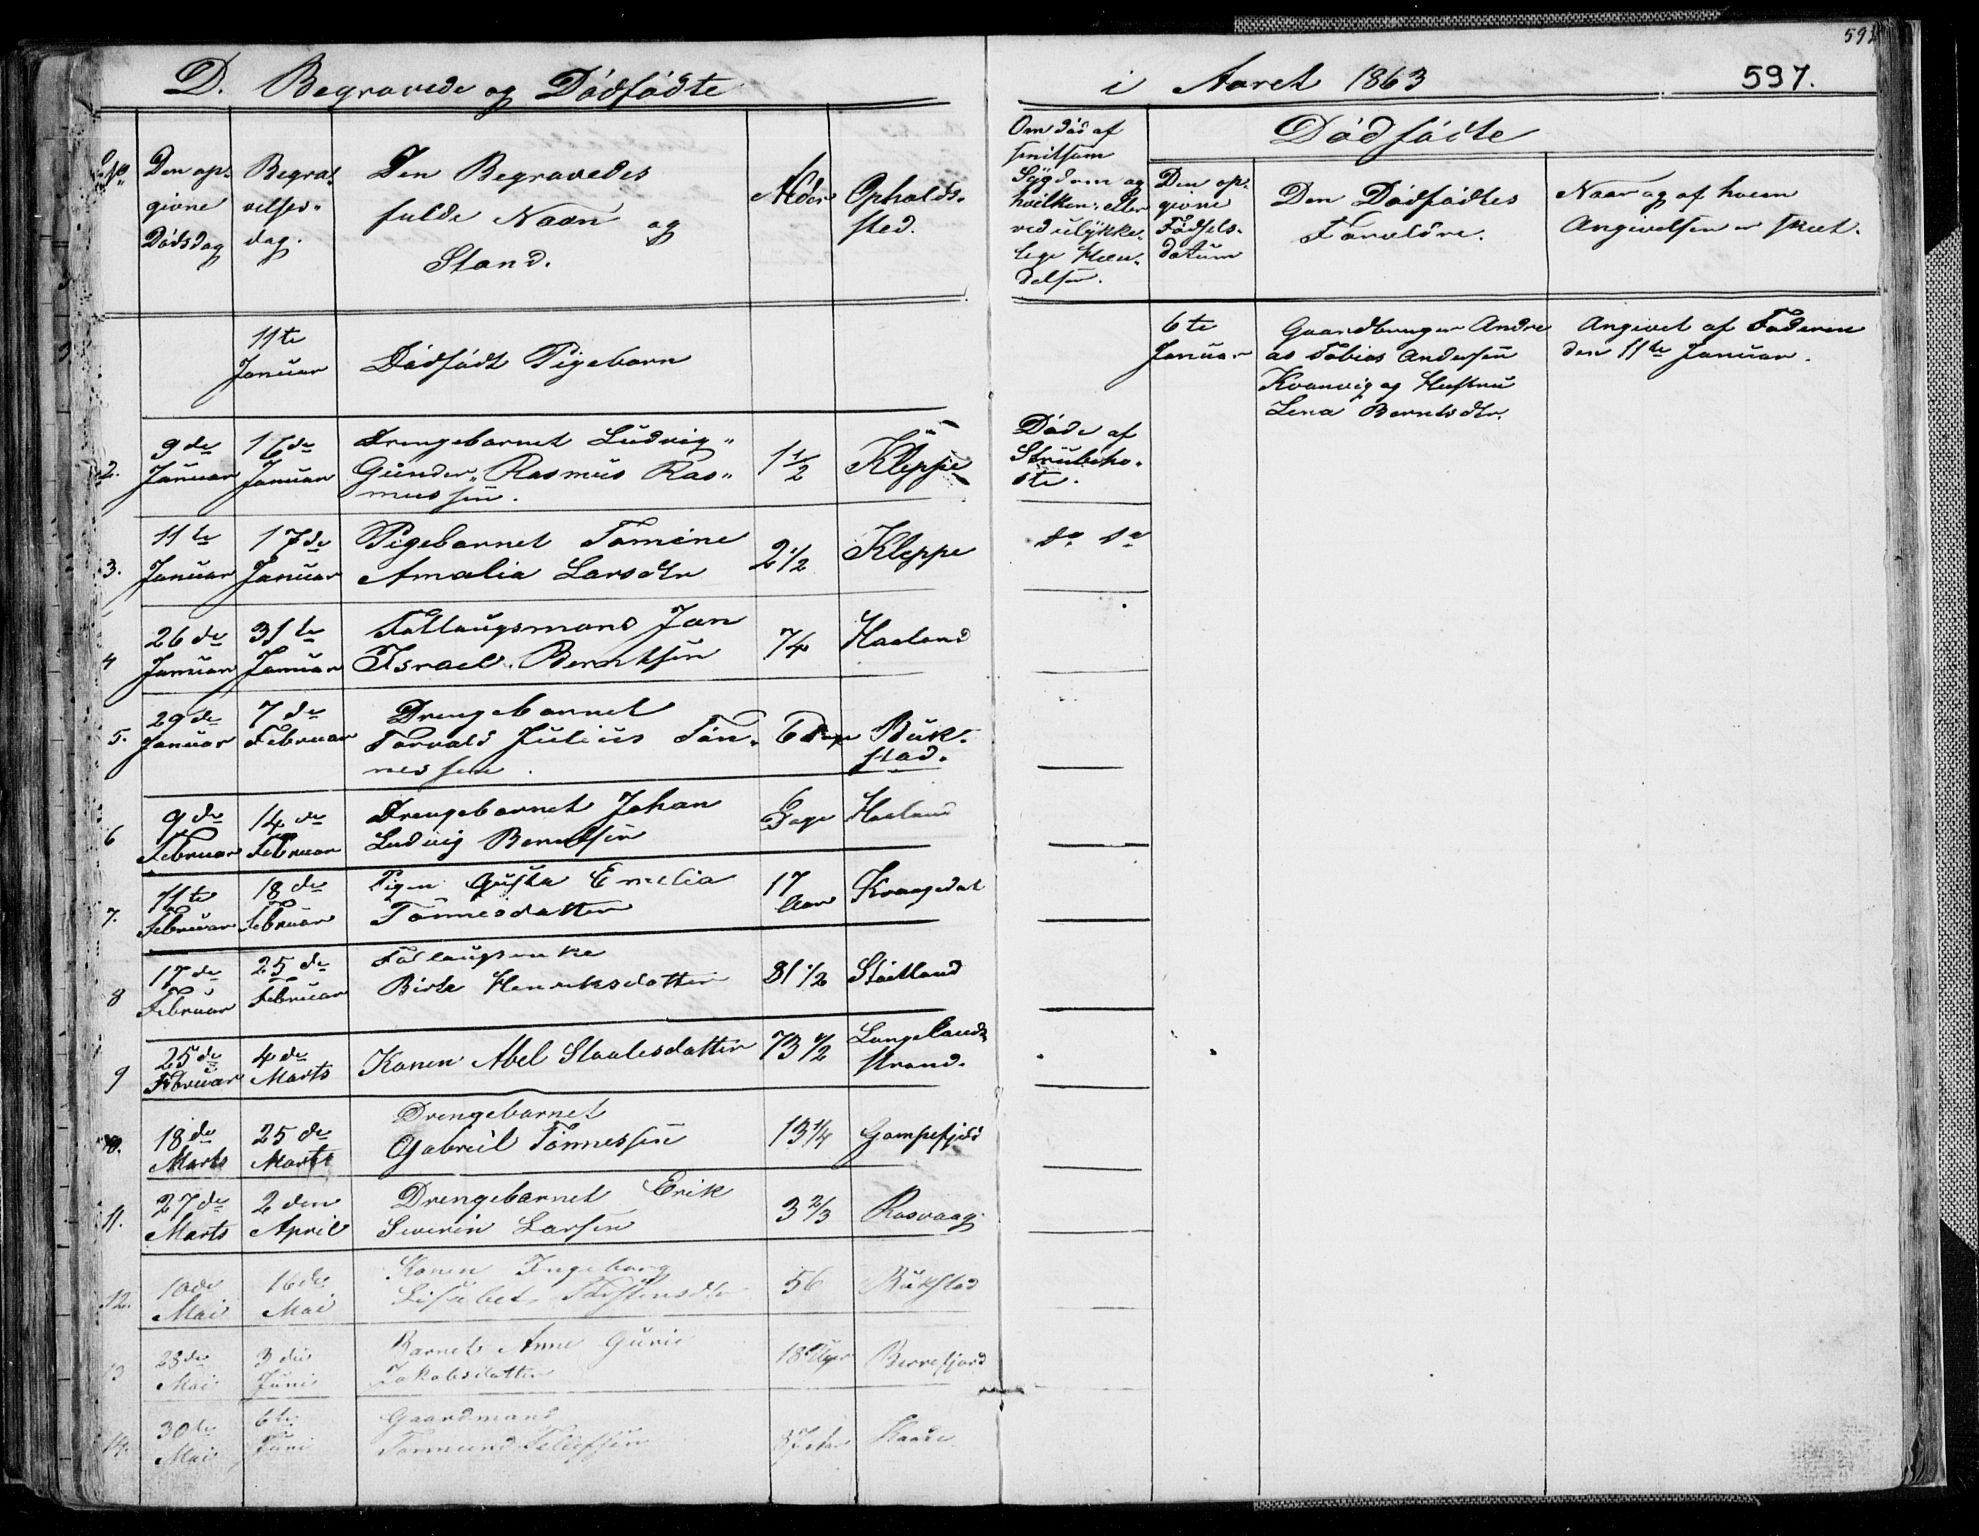 D. Begravede og Dødfødte i Aaret 1863 597.
591
No.
Den op-
givne
Dødsdag
Begra-
velses-
dag.
Den Begravedes
fulde Navn og
Stand.
Alder
Opholds-
sted.
Om død af
smitsom
Sygdom og
hvilken, eller
ved ulykke-
lige Hæn-
delser.
Dødfødte
Den op-
givne
Fødsels-
datum
Den Dødfødtes
Forældre.
Naar og af hvem
Angivelsen er skeet.
11te
Januar
Dødfødt Pigebarn
6te
Januar
Gaardbruger Andre
as Tobias Andersen
Kvanvig og Hustru
Lena Berntsdtr.
Angivet af Faderen
den 11te Januar.
2.
9de
Januar
16de
Januar
Drengebarnet Ludvig
Gunder Rasmus Ras-
mussen.
1 1/2
Kleppe
Døde af
Strubeho-
ste.
3.
11te
Januar
17de
Januar
Pigebarnet Tomine
Amalia Larsdtr
2 1/2
Kleppe
do do
4
26de
Januar
31te
Januar
Follaugsmand Jan
Israel Berntsen
74
Haaland
5.
29de
Januar
7de
Februar
Drengebarnet
Torvald Julius Tøn-
nessen.
6 Dage
Buk-
stad.
6
9de
Februar
14de
Februar
Drengebarnet Johan
Ludvig Berntsen
6
Dage
Haaland
7.
11te
Februar
18de
Februar
Pigen Gusta Emelia
Tønnesdatter
17
Aar
Kvaagedal
8
17de
Februar
25de
Februar
Follaugsenke
Birte Henriksdatter
81 1/2
Sløitland
9
25de
Februar
4de
Marts
Konen Abel Staalesdatter
73 1/2
Langelands
strand.
10.
18de
Marts
25de
Marts
Drengebarnet
Gabriel Tønnessen
13 1/4
Gompefjeld
11.
27de
Marts
2den
April
Drengebarnet Erik
Severin Larsen
3 2/3
Rosvaag.
12.
10de
Mai
16de
Mai
Konen Ingeborg
Lisabet Torstensdtr
56
Bukstad
13
23de
Mai
3die
Juni
Barnet Anne Gurie
Jakobsdatter
18 Uger
Berrefjord
14.
30te
Mai
6te
Juni
Gaardmand
Tormund Tellefsen
Haade